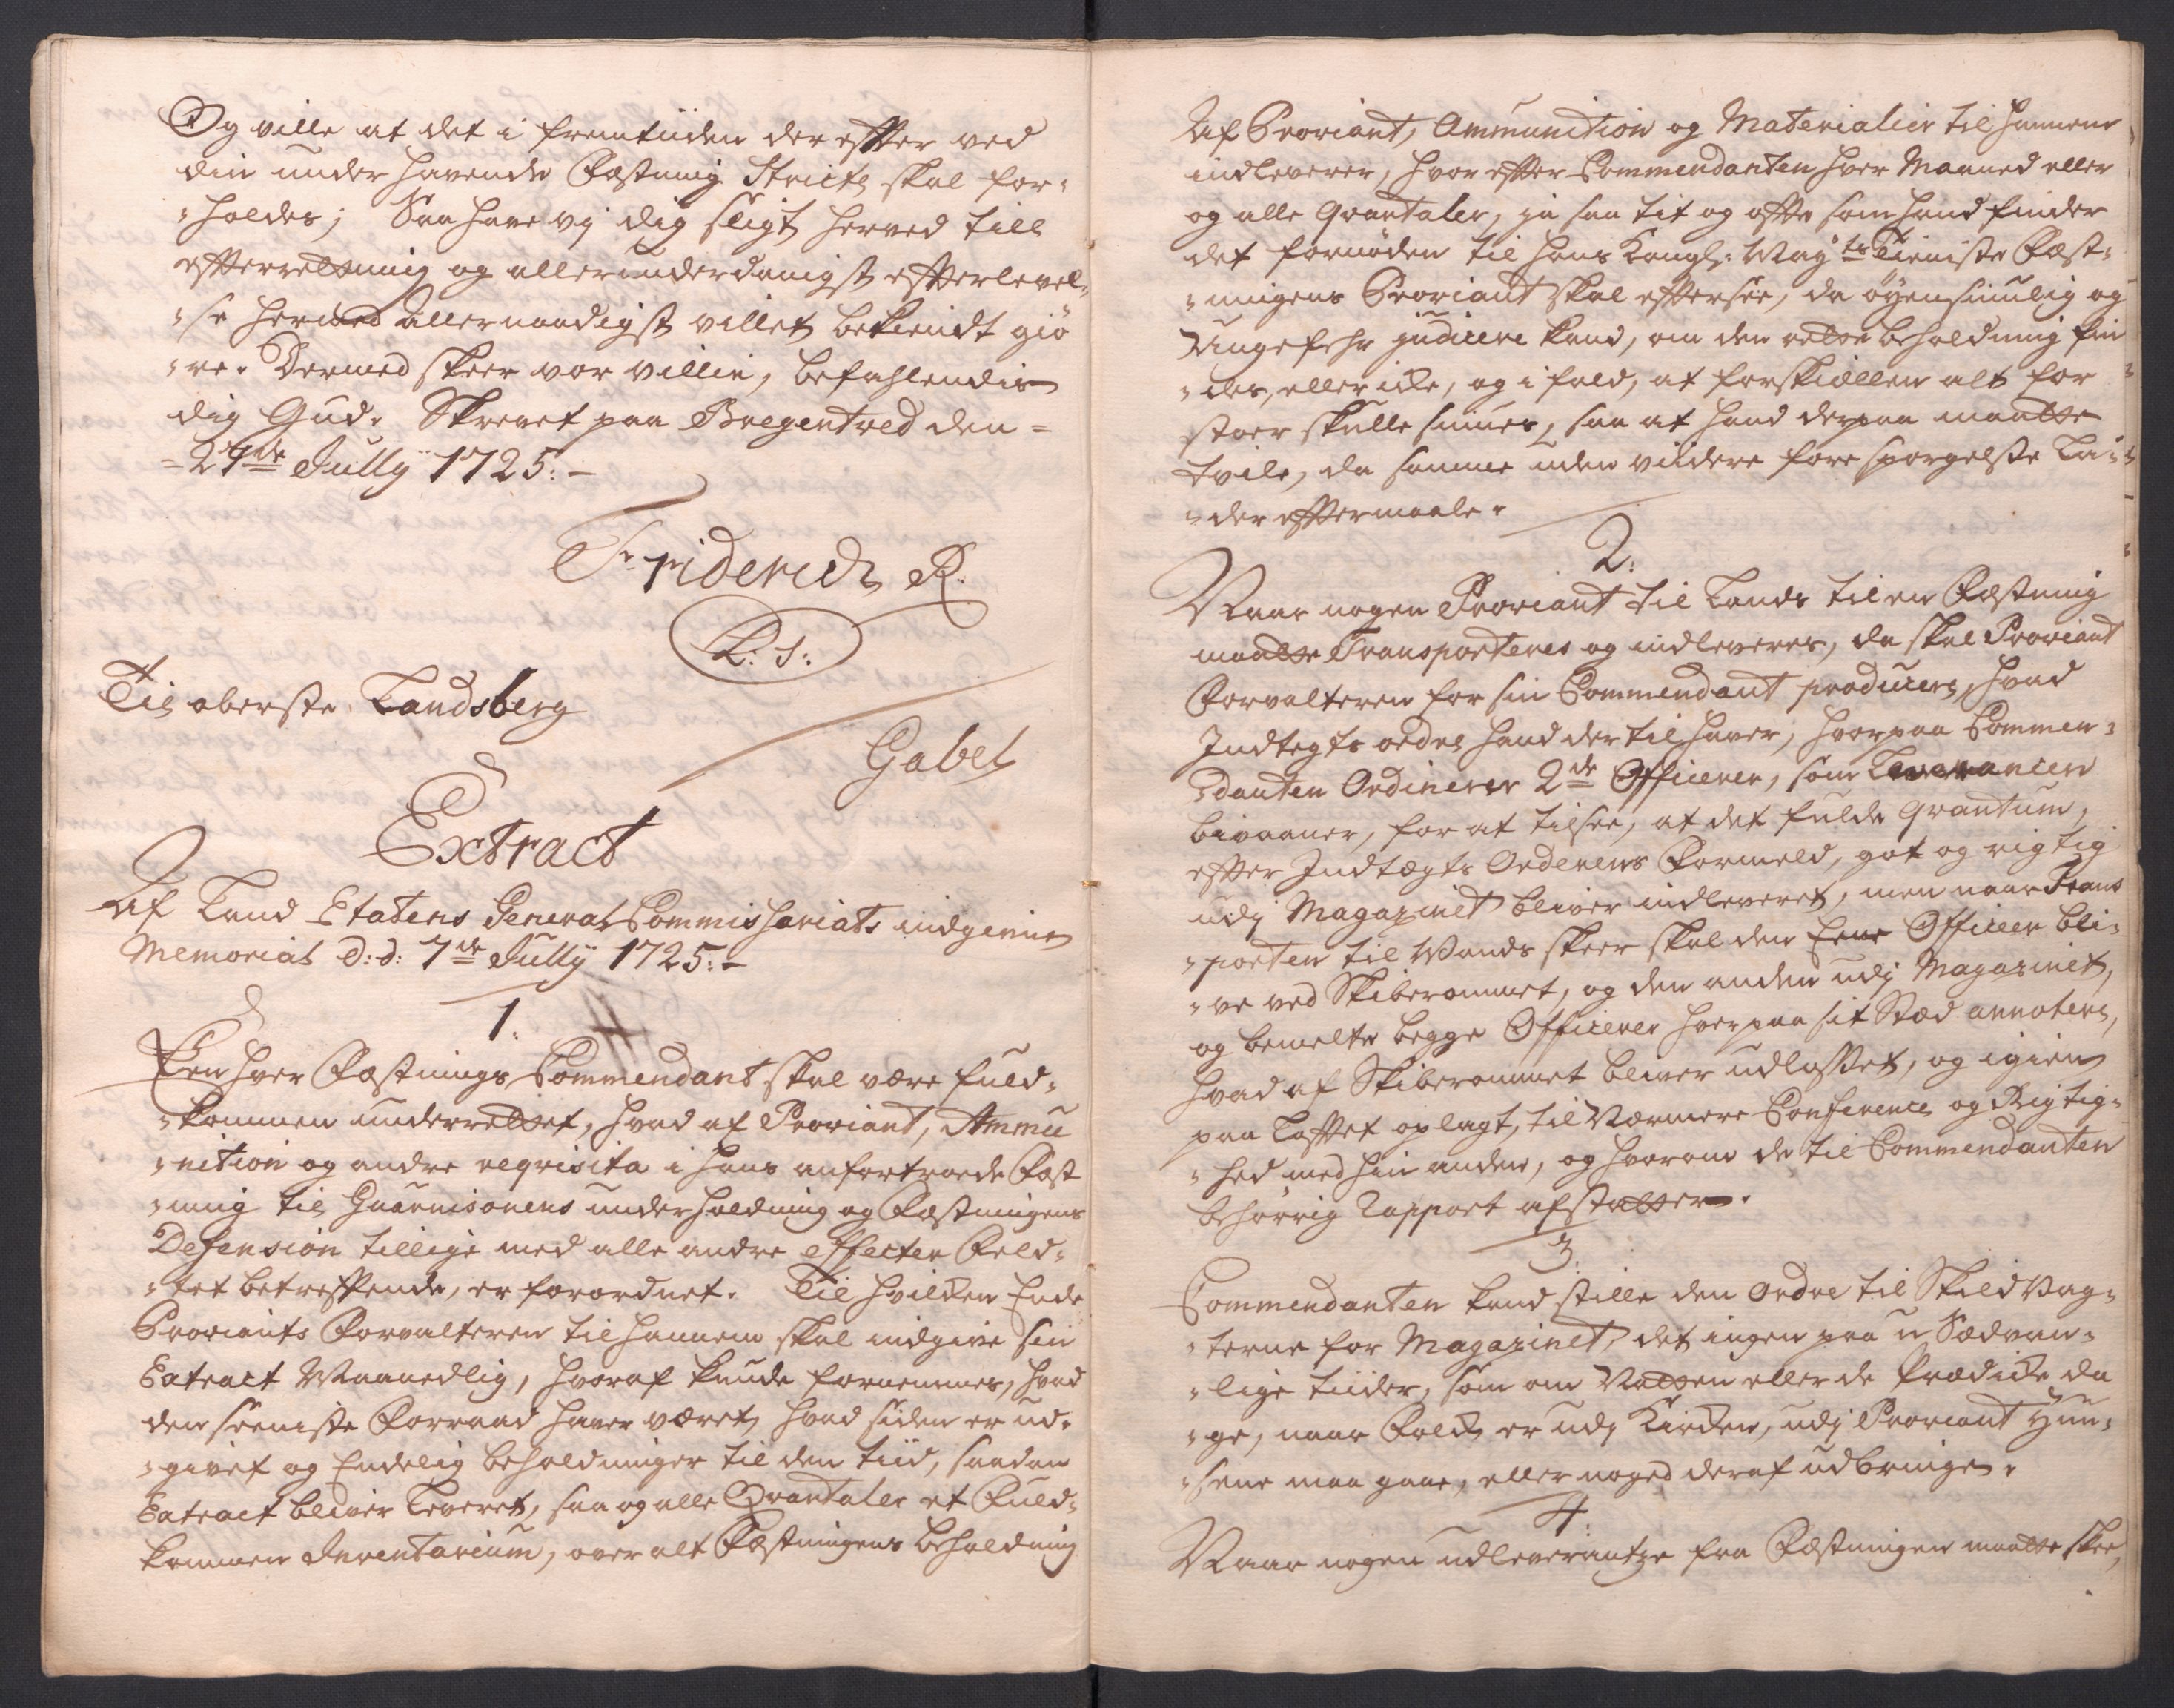 Og ville at det i fremtiiden der effter ved
din under havende Fæstning Stricte skal for-
-holdes; Saa have vj dig sligt herved till
efterretning og allerunderdanigst efterlevel-
-se hermed allernaadigst villet bekiendt giö
-re. Dermed skeer vor villie, befahlendis
dig Gud. Skrevet paa Bregentved den =
= 27de Jullij 1725: -
Friderich R.
L: S:
Til oberste Landsberg
Gabel
Extract
Af Land Etatens General Commissariats indgivne
Memorial d: d: 7de Jullij 1725: -
1.
Een hver Fæstnings Commendant skal være fuld-
-kommen underrettet, hvad af Proviant, Ammu
-nition og andre reqvisita i hans anfortroede Fæst
-ning til Guarnisonens underholdning og Fæstningens
Defension tillige med alle andre effecter Feld-
-tet betreffende, er forordnet. Til hvilken Ende
Proviants Forvalteren til hannem skal indgive sin
Extract Maanedlig, hvoraf kunde fornemmes, hvad
den seeniste Forraad haver været, hvad siden er ud-
-givet og Endelig beholdninger til den tiid, saadan
Extract bliver Leveret, saa og alle Qvartaler et Fuld-
kommen Inventarium, over alt Fæstningens beholdning
Af Proviant, Ammunition og Materialier til hannem
indleverer, hvor effter Commendanten hver Maaned eller
og alle Qvartaler, ja saa tit og offte som hand finder
det fornöden til Hans Kongl: May:ts Tieniste Fæst-
-ningens Proviant skal effersee, da öyensiunlig og
Ungefehr judicere kand, om den rette beholdning fin
-des, eller icke, og i fald, at forskiællen alt for
stoer skulle siunes, saa at hand derpaa maatte
tvile, da samme uden viidere forespörgelsse La-
-der effermaale.
2.
Naar nogen Proviant til Lands til en Fæstning
maatte Transporteres og indleveres, da skal Proviant
Forvalteren for sin Commendant producere, hvad
Indtegts ordre hand der til haver, hvorpaa Commen-
-danten Ordinerer 2de Officerer, som Leverancen
bivaaner, for at tilsee, at det fulde Qvantum,
effter Indtægts Ordrens Formeld, got og rigtig
udj Magazinet bliver indleveret, men naar Trans
-porten til Vands skeer skal den Eene Officeer bli-
-ve ved Skiberommet, og den anden udj Magazinet,
og bemelte begge Officerer hver paa sit Sted annotere,
hvad af Skiberommet bliver udlosset, og igien
paa Lofftet oplagt, til Nærmere Conference og Rigtig-
-hed med hin anden, og hvorom de til Commendanten
behörrig Rapport afstatter.
3.
Commendanten kand stille den Ordre til Skild Vag-
-terne for Magazinet, det ingen paa u Sædvan-
-lige tiider, som om Natten eller de Prædicke da
-ge, naar Folck er udj Kircken, udj Proviant Huu-
-sene maa gaae, eller noged deraf udbringe.
4.
Naar nogen udleverantze fra Fæstningen maatte skee,